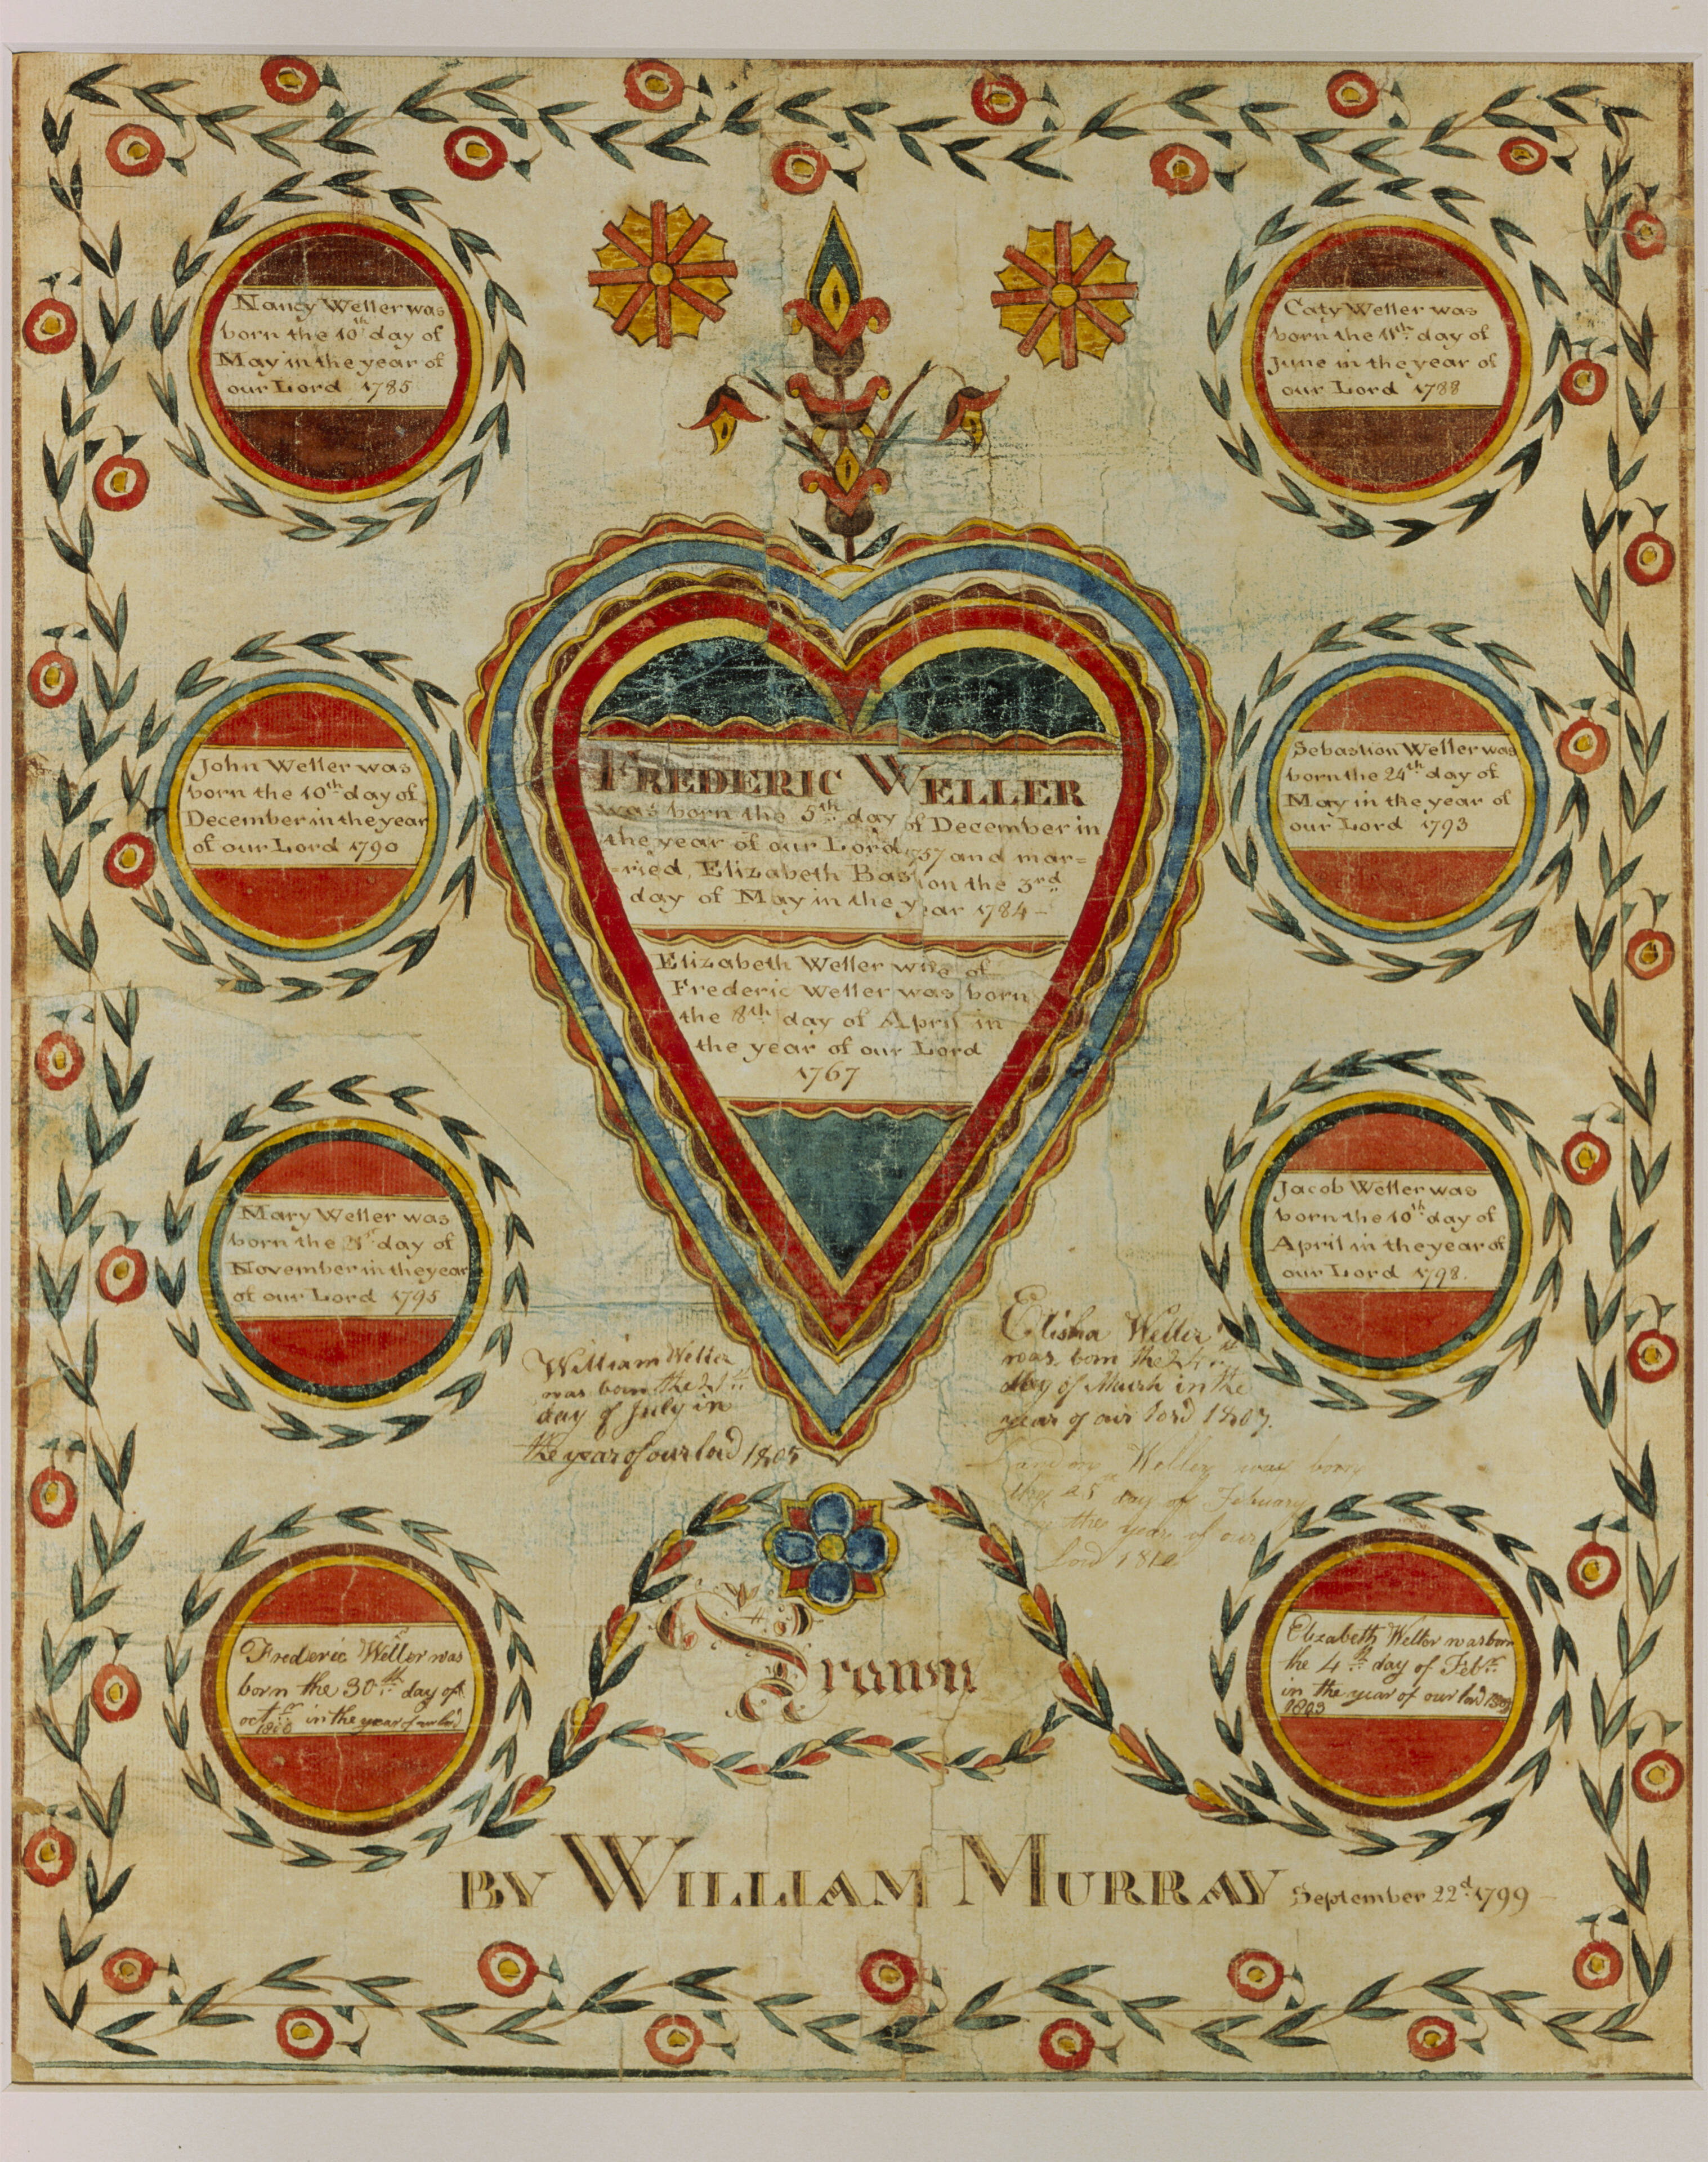 Nancy Weller was
born the 10th day of
May in the year of
our Lord 1785
Caty Weller was
born the 11th day of
June in the year of
our Lord 1788
John Weller was
born the 10th day of
December in the year
of our Lord 1790
Sebastion Weller was
born the 24th day of
May in the year of
our Lord 1793
FREDERIC WELLER
was born the 5th day of December in
the year of our Lord 1757 and mar=
=ried Elizabeth Bas on the 3rd
day of May in the year 1784 -
Elizabeth Weller wife of
Frederic Weller was born
the 8th day of April in
the year of our Lord
1767
Mary Weller was
born the 21st day of
November in the year
of our Lord 1795
Jacob Weller was
born the 10th day of
April in the year of
our Lord 1798.
William Weller
was born the 21st
day of July in
the year of our lord 1805
Elisha Weller
was born the 24
day of March in the
year of our lord 1807.
Weller was born
the 25 day of Febuary
the year of our
Lord 1812
Frederic Weller was
born the 30th day of
octr in the year of our lord
1800
Elizabeth Weller was born
the 4th day of Febr
in the year of our lord
1803
Drawn
BY WILLIAM MURRAY September 22d 1799